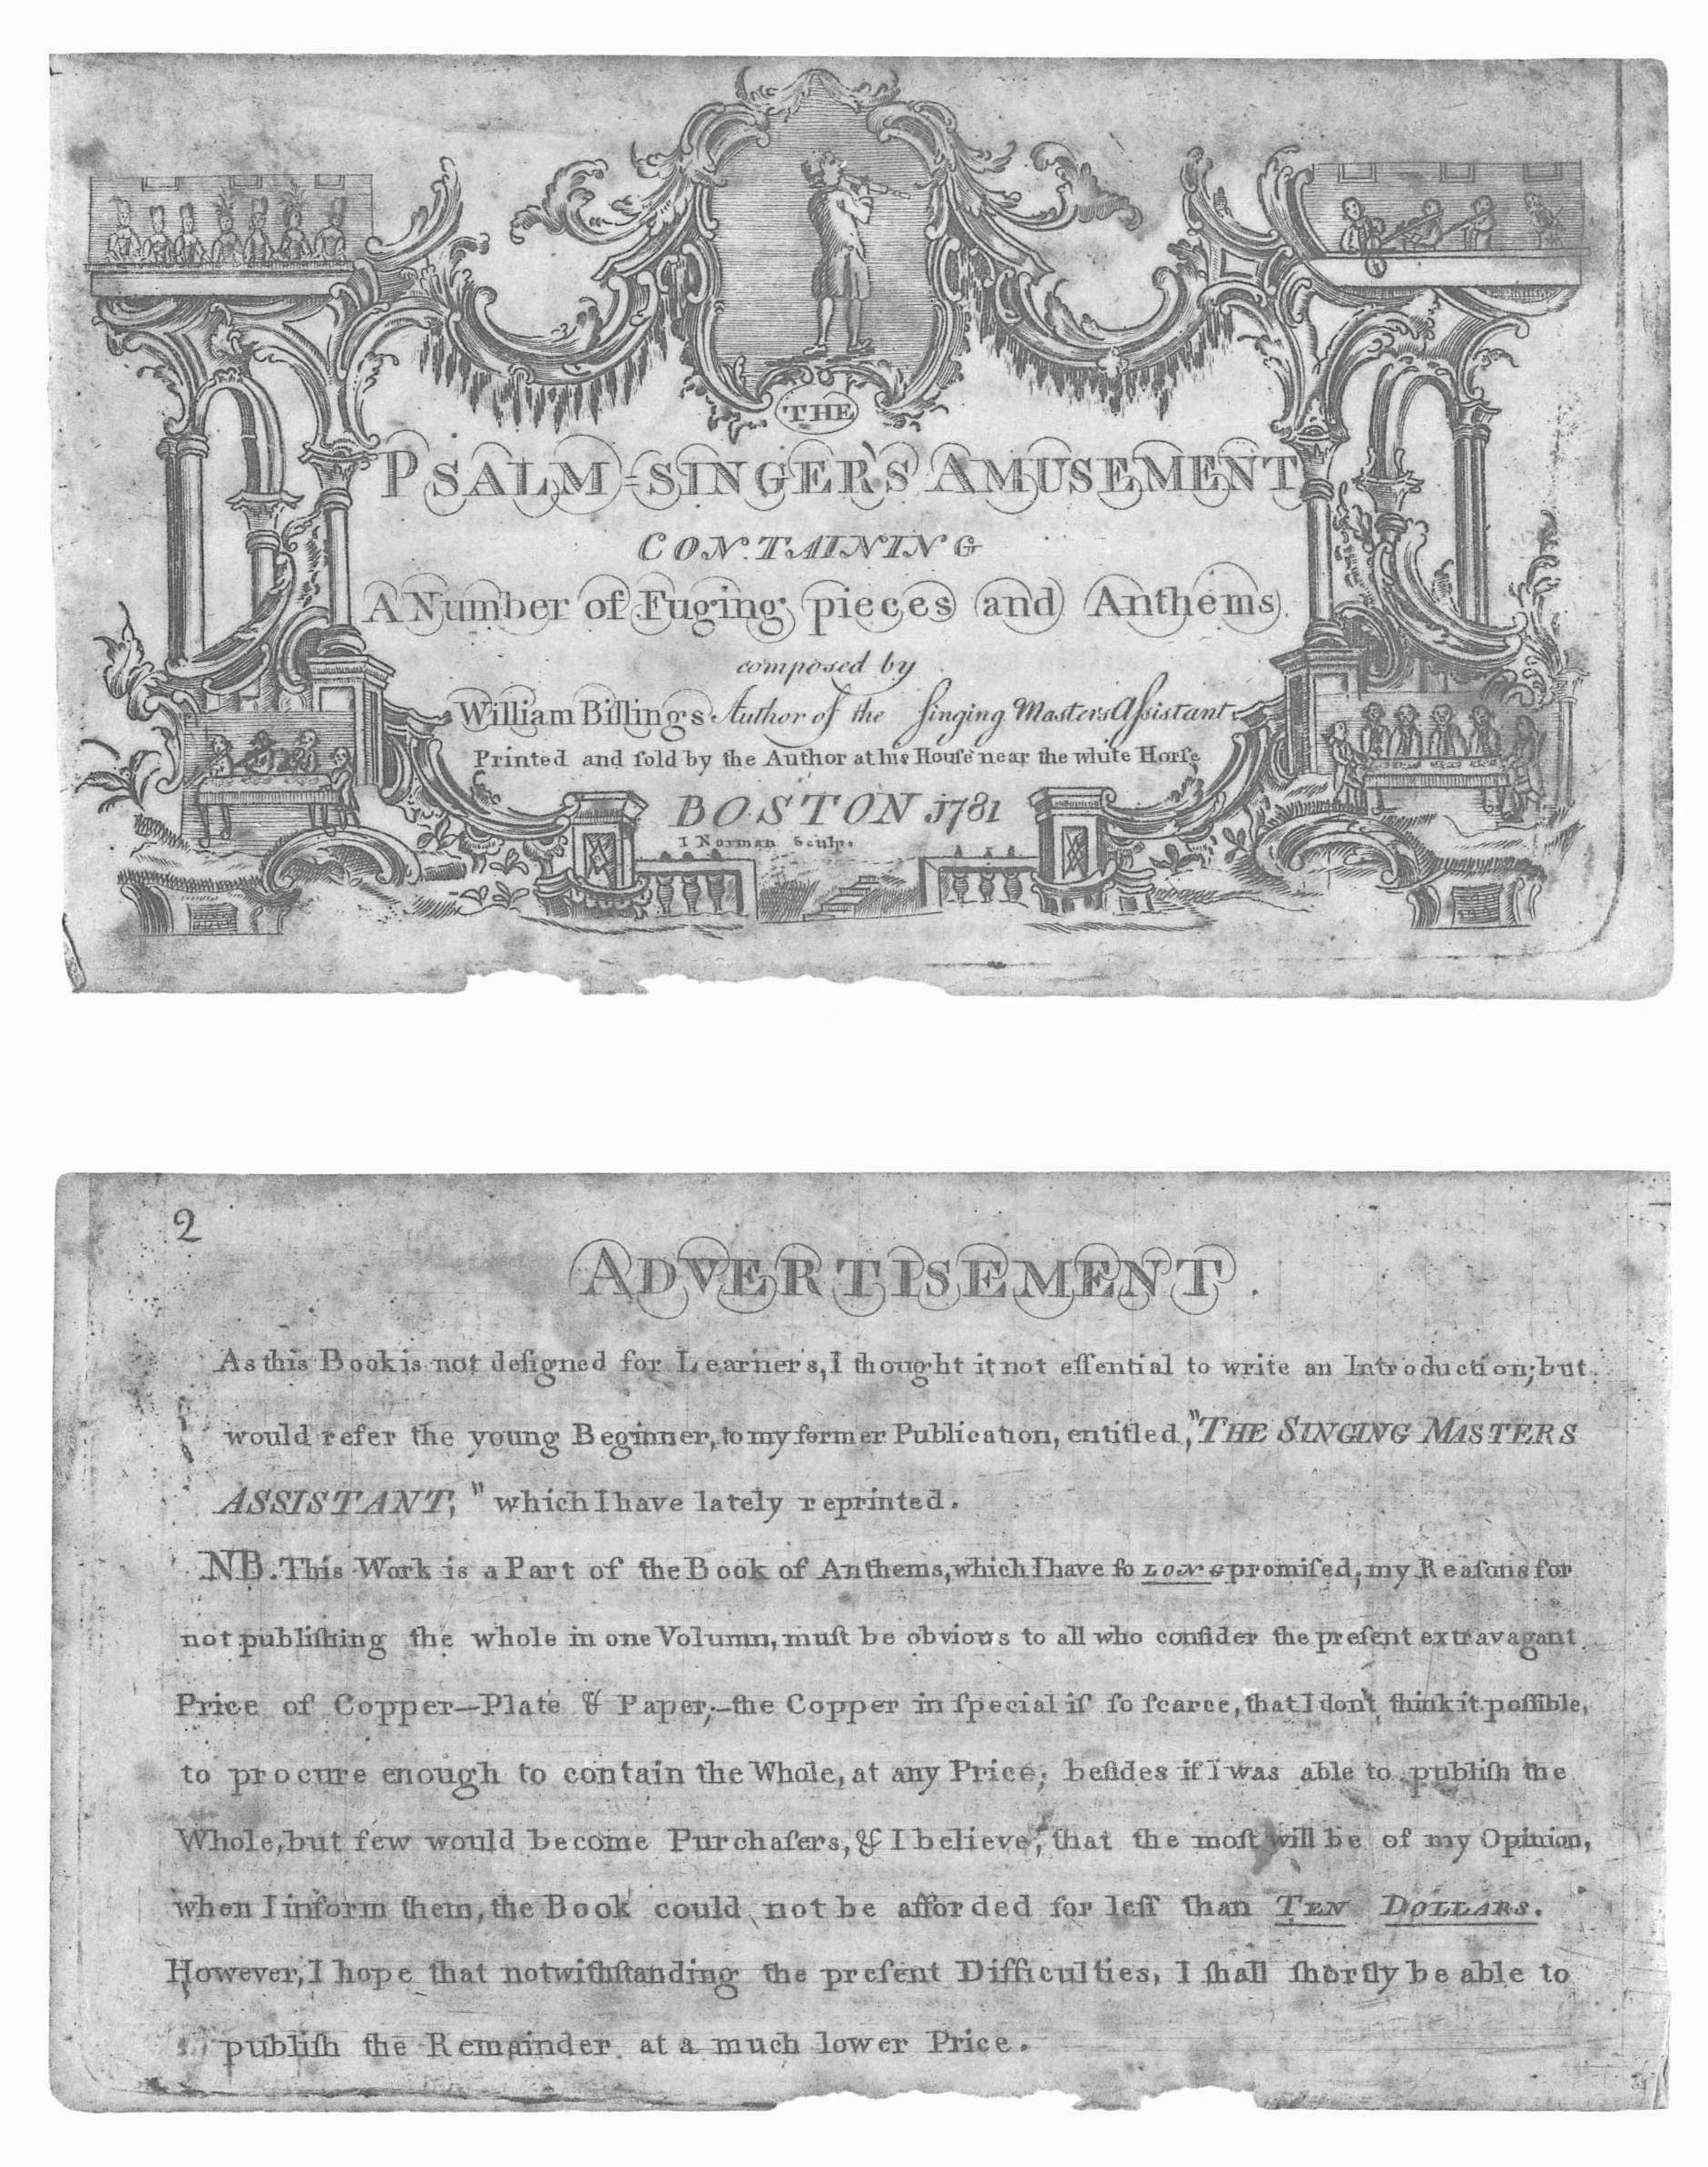 THE
PSALM-SINGER'S AMUSEMENT
CONTAINING
A Number of Fuging pieces and Anthems.
composed by
William Billings Author of the ſinging Masters Aſsistant
Printed and ſold by the Author at his Houſe near the white Horſe
BOSTON 1781
I Norman Sculp.
2
ADVERTISEMENT.
As this Book is not deſigned for Learner's, I thought it not eſſential to write an Introduction; but
would refer the young Beginner, to my former Publication, entitled, "THE SINGING MASTERS
ASSISTANT," which I have lately reprinted.
NB. This Work is a Part of the Book of Anthems, which I have ſo LONG promiſed, my Reaſons for
not publiſhing the whole in one Volumn, muſt be obvious to all who conſider the preſent extravagant
Price of Copper—Plate & Paper;—the Copper in ſpecial iſ ſo ſcarce, that I don't think it poſſible,
to procure enough to contain the Whole, at any Price; beſides if I was able to publiſh the
Whole, but few would become Purchaſers, & I believe, that the moſt will be of my Opinion,
when I inform them, the Book could not be afforded for leſſ than TEN DOLLARS.
However, I hope that notwithſtanding the preſent Difficulties, I ſhall ſhortly be able to
publiſh the Remainder at a much lower Price.